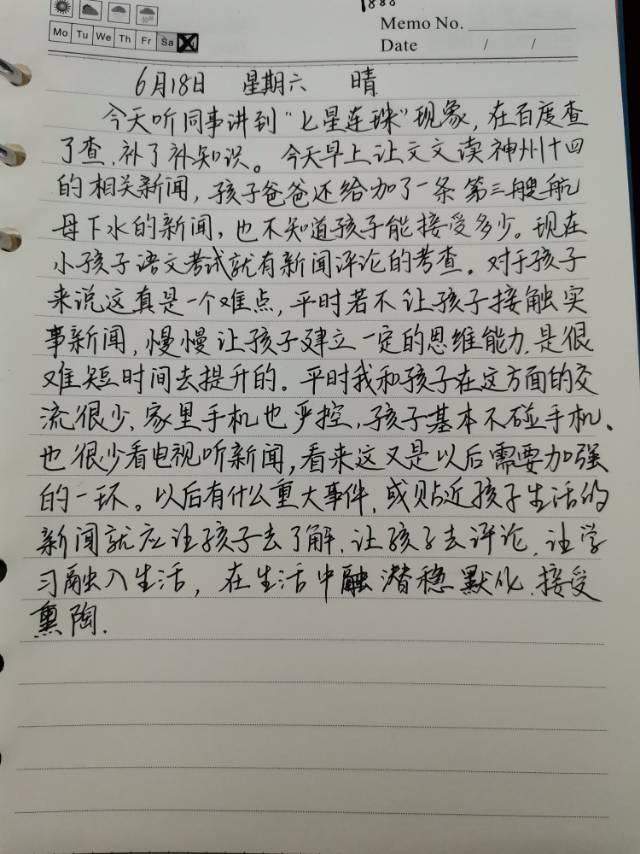 Memo No.
Mo Tu We Th Fr Sa
Date / /
6月18日 星期六 晴
今天听同事讲到“七星连珠”现象,在百度查
了查,补了补知识。今天早上让文文读神州十四
的相关新闻,孩子爸爸还给加了一条第三艘航
母下水的新闻,也不知道孩子能接受多少。现在
小孩子语文考试就有新闻评论的考查。对于孩子
来说这真是一个难点,平时若不让孩子接触实
事新闻,慢慢让孩子建立一定的思维能力,是很
难短时间去提升的。平时我和孩子在这方面的交
流很少,家里手机也严控,孩子基本不碰手机、
也很少看电视听新闻,看来这又是以后需要加强
的一环。以后有什么重大事件,或贴近孩子生活的
新闻就应让孩子去了解,让孩子去评论,让学
习融入生活,在生活中融潜稳默化,接受
熏陶.